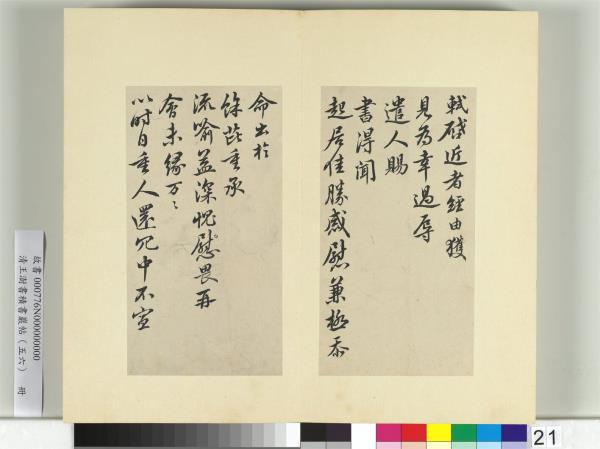 軾啟近者經由獲
見為幸過辱
遣人賜
書得聞
起居佳勝感慰兼極忝
命出於
餘芘重承
流喻益深愧畏再
會未緣万〻
以時自重人還冗中不宣
故書000776N000000000
清王澍書積書巖帖（五六） 冊
21